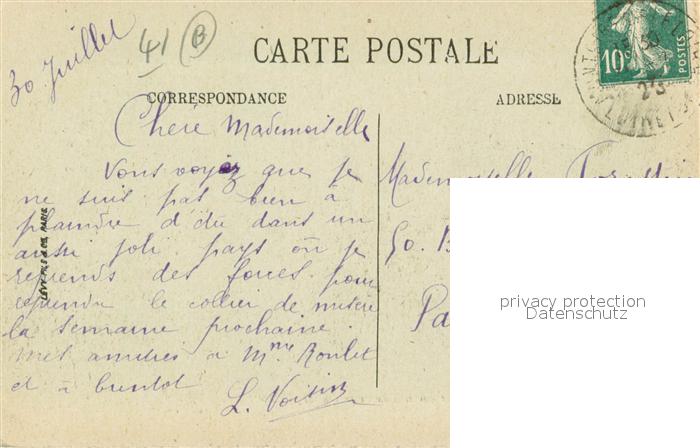 30 Juillet
41 B
CARTE POSTALE
CORRESPONDANCE
ADRESSE
10c
POSTES
23
LOIRET
Chère Mademoiselle
Vous voyez que je
ne suis pas bien à
plaindre d'être dans un
aussi joli pays où je
reprends des forces pour
reprendre le collier de misère
la semaine prochaine.
Mes amitiés à Mme Roulet
et à bientôt
L. Voisin
LEVY FILS & CIE, PARIS
Mademoiselle
50. B
Pa
privacy protection
Datenschutz